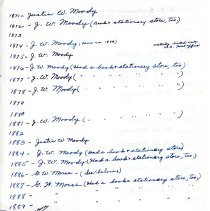 1871 - Justin W. Moody
1872 - J. W. Moody (Book & stationery store, too)
1873
1874 - J. W. Moody
1875 - J. W. Moody
1876 - J. W. Moody (Had a book & stationery store, too)
1877 - J. W. Moody ( " " " " )
1878 - J. W. Moody ( " " " " )
1879
1880
1881 - J. W. Moody ( " " " " )
1882
1883 - Justin W. Moody
1884 - J. W. Moody (Had a book & stationery store, too)
1885 - J. W. Moody (Had a book & stationery store, too)
1886 - G. W. Morse -
1887 - G. W. Morse (Had a book & stationery store, too)
1888 -
1889 -